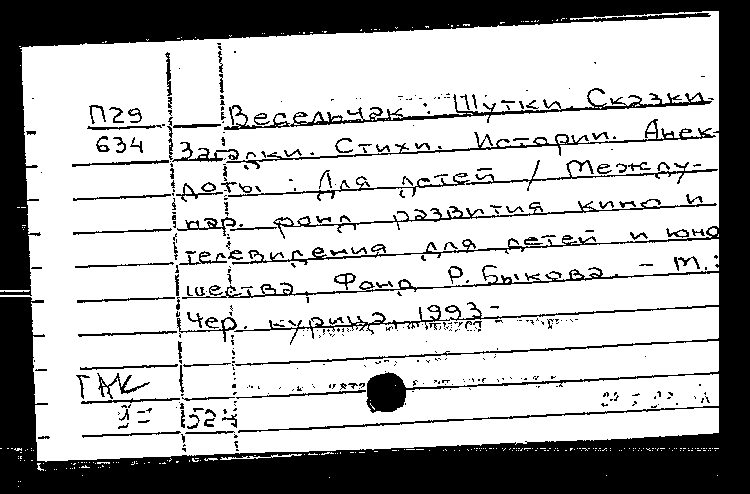 П29 Весельчак : Шутки. Сказки.
634 Загадки. Стихи. Истории. Анек-
доты : Для детей / Между-
нар. фонд развития кино и
телевидения для детей и юно
шества, Фонд Р. Быкова. - М.:
Чер. курица, 1993-
ГАК
524